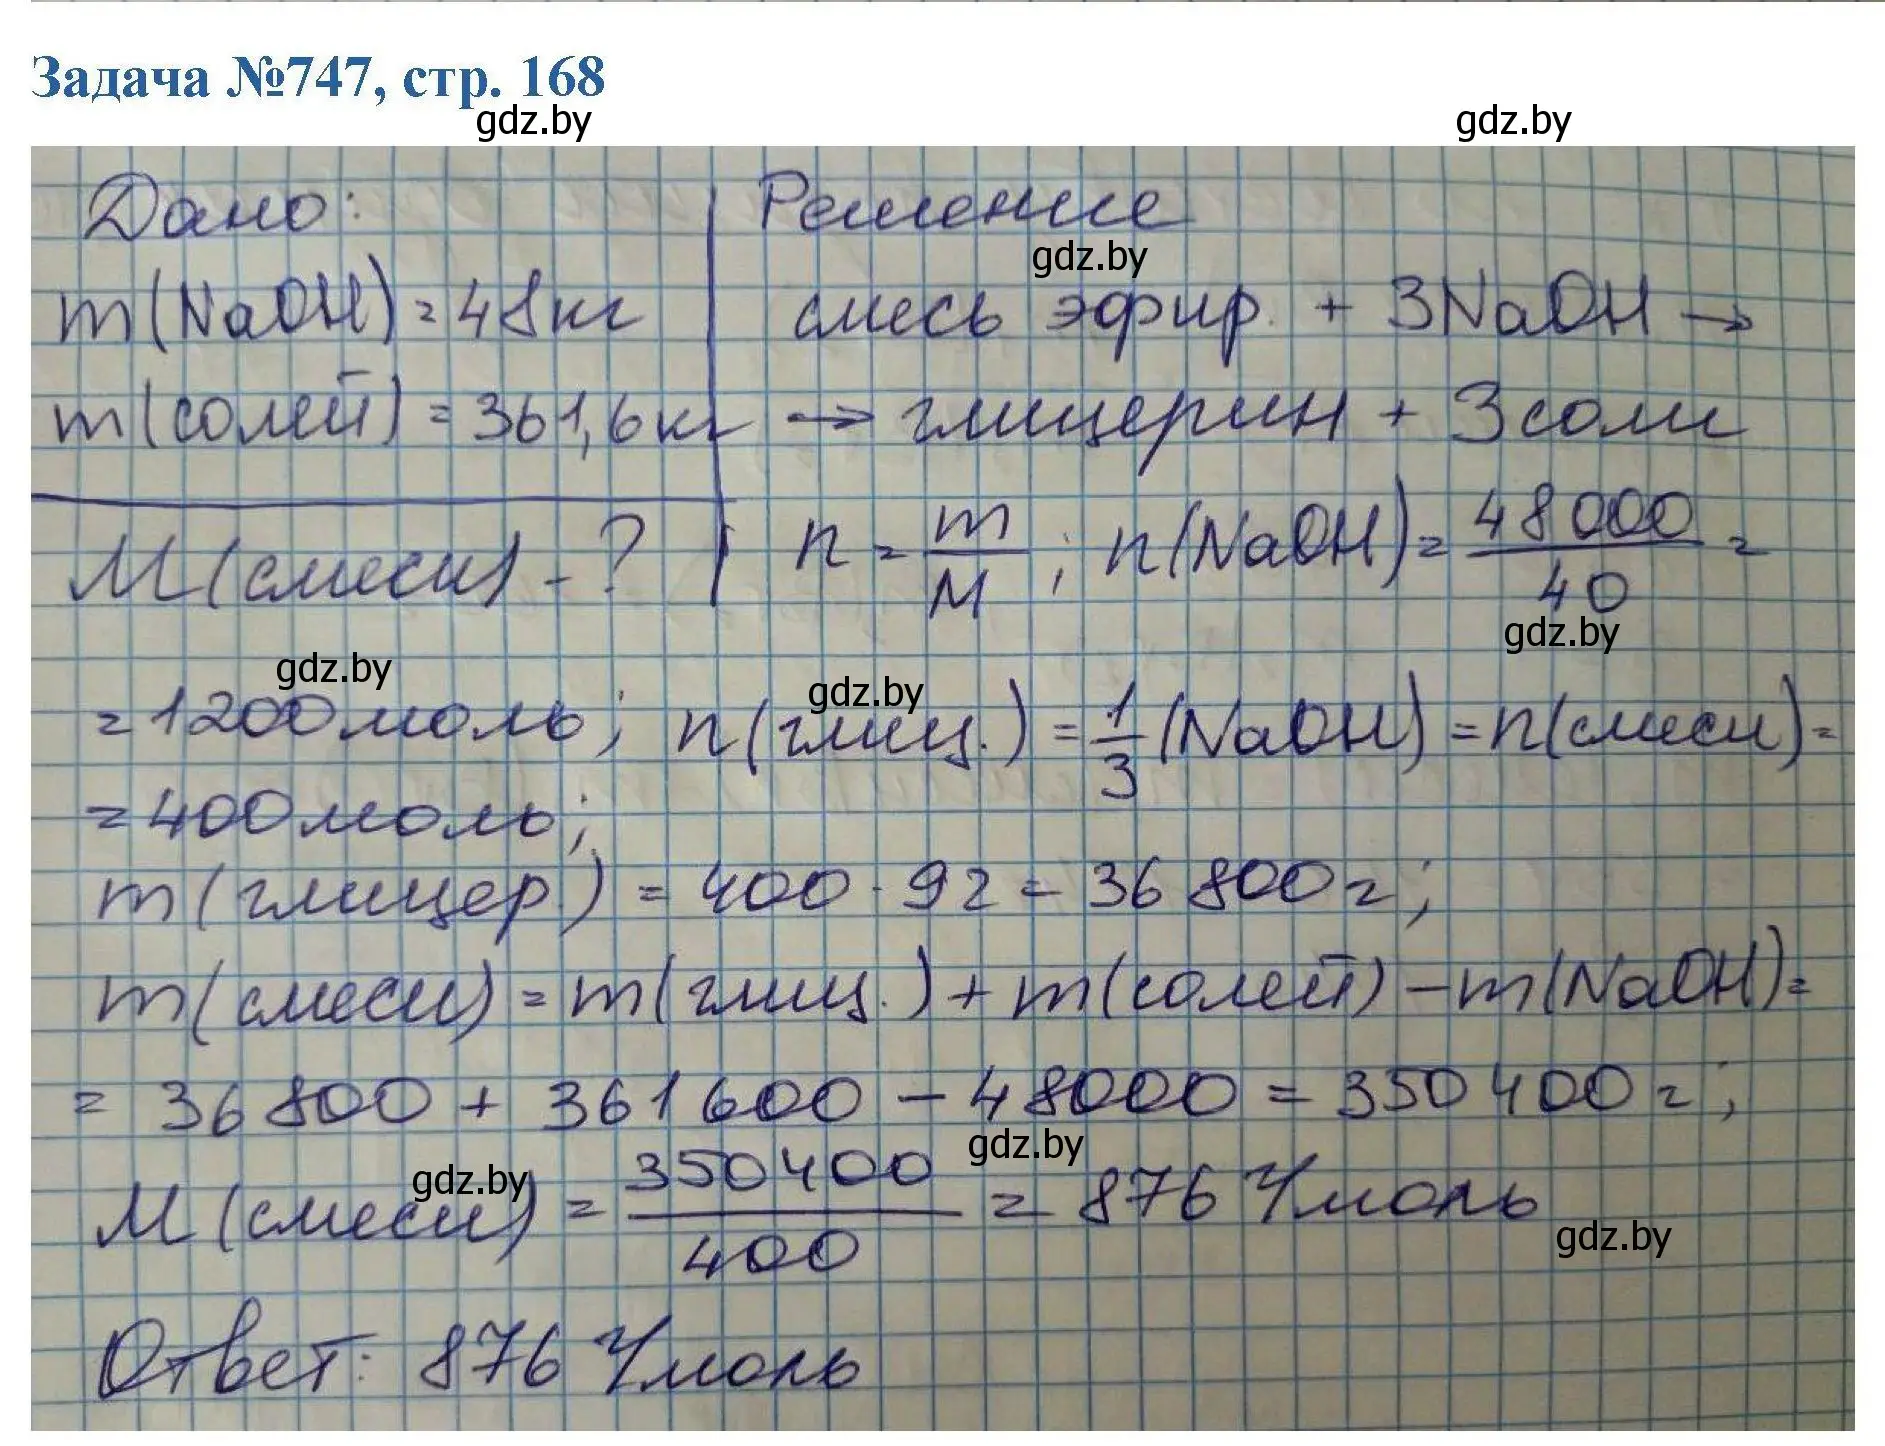 Задача №747, стр. 168
gdz.by gdz.by
Дано: Решение
gdz.by
m(NaOH)=48кг смесь эфир. + 3NaOH →
m(солей)=361,6кг → глицерин + 3соли
M(смеси) - ? n = m/M ; n(NaOH) = 48000/40 =
gdz.by
gdz.by gdz.by
= 1200моль; n(глиц.) = 1/3 (NaOH) = n(смеси) =
= 400моль;
m(глицер.) = 400 · 92 = 36 800г;
m(смеси) = m(глиц.) + m(солей) - m(NaOH) =
= 36 800 + 361 600 - 48000 = 350 400г;
gdz.by gdz.by
M(смеси) = 350400/400 = 876 г/моль
gdz.by
Ответ: 876 г/моль